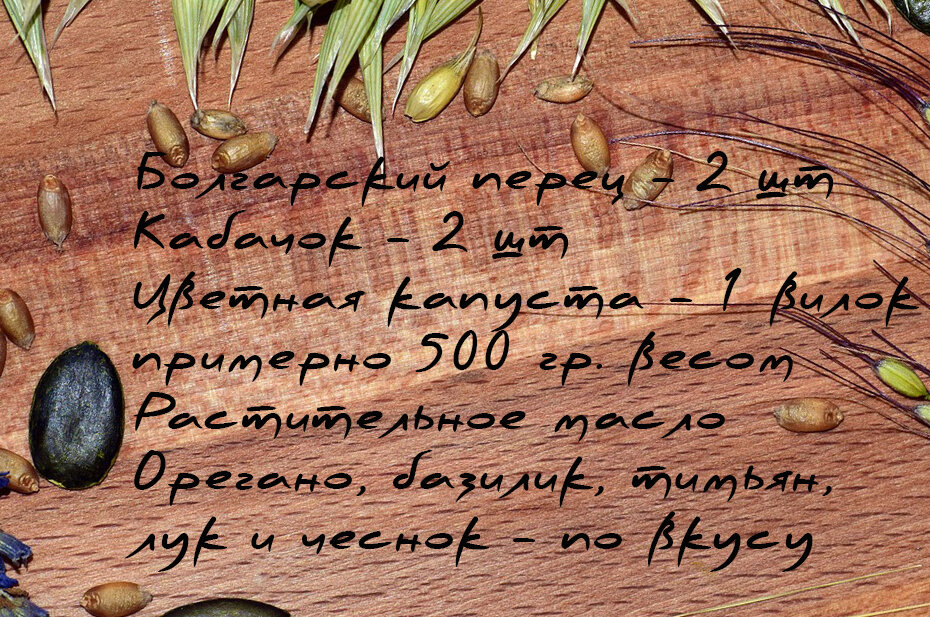 Болгарский перец - 2 шт
Кабачок - 2 шт
Цветная капуста - 1 вилок
примерно 500 гр. весом
Растительное масло
Орегано, базилик, тимьян,
лук и чеснок - по вкусу